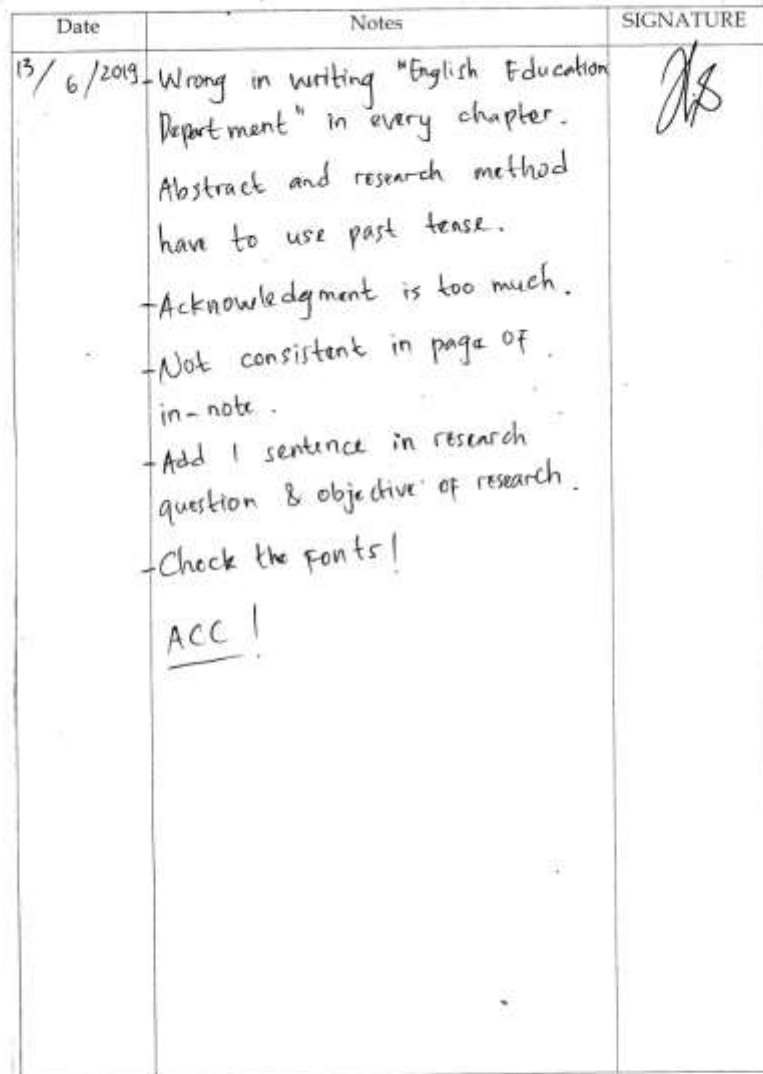 Date Notes SIGNATURE
13/6/2019 - Wrong in writing "English Education
Department" in every chapter.
Abstract and research method
have to use past tense.
- Acknowledgment is too much.
- Not consistent in page of
in-note.
- Add 1 sentence in research
question & objective of research.
- Check the Fonts!
ACC !